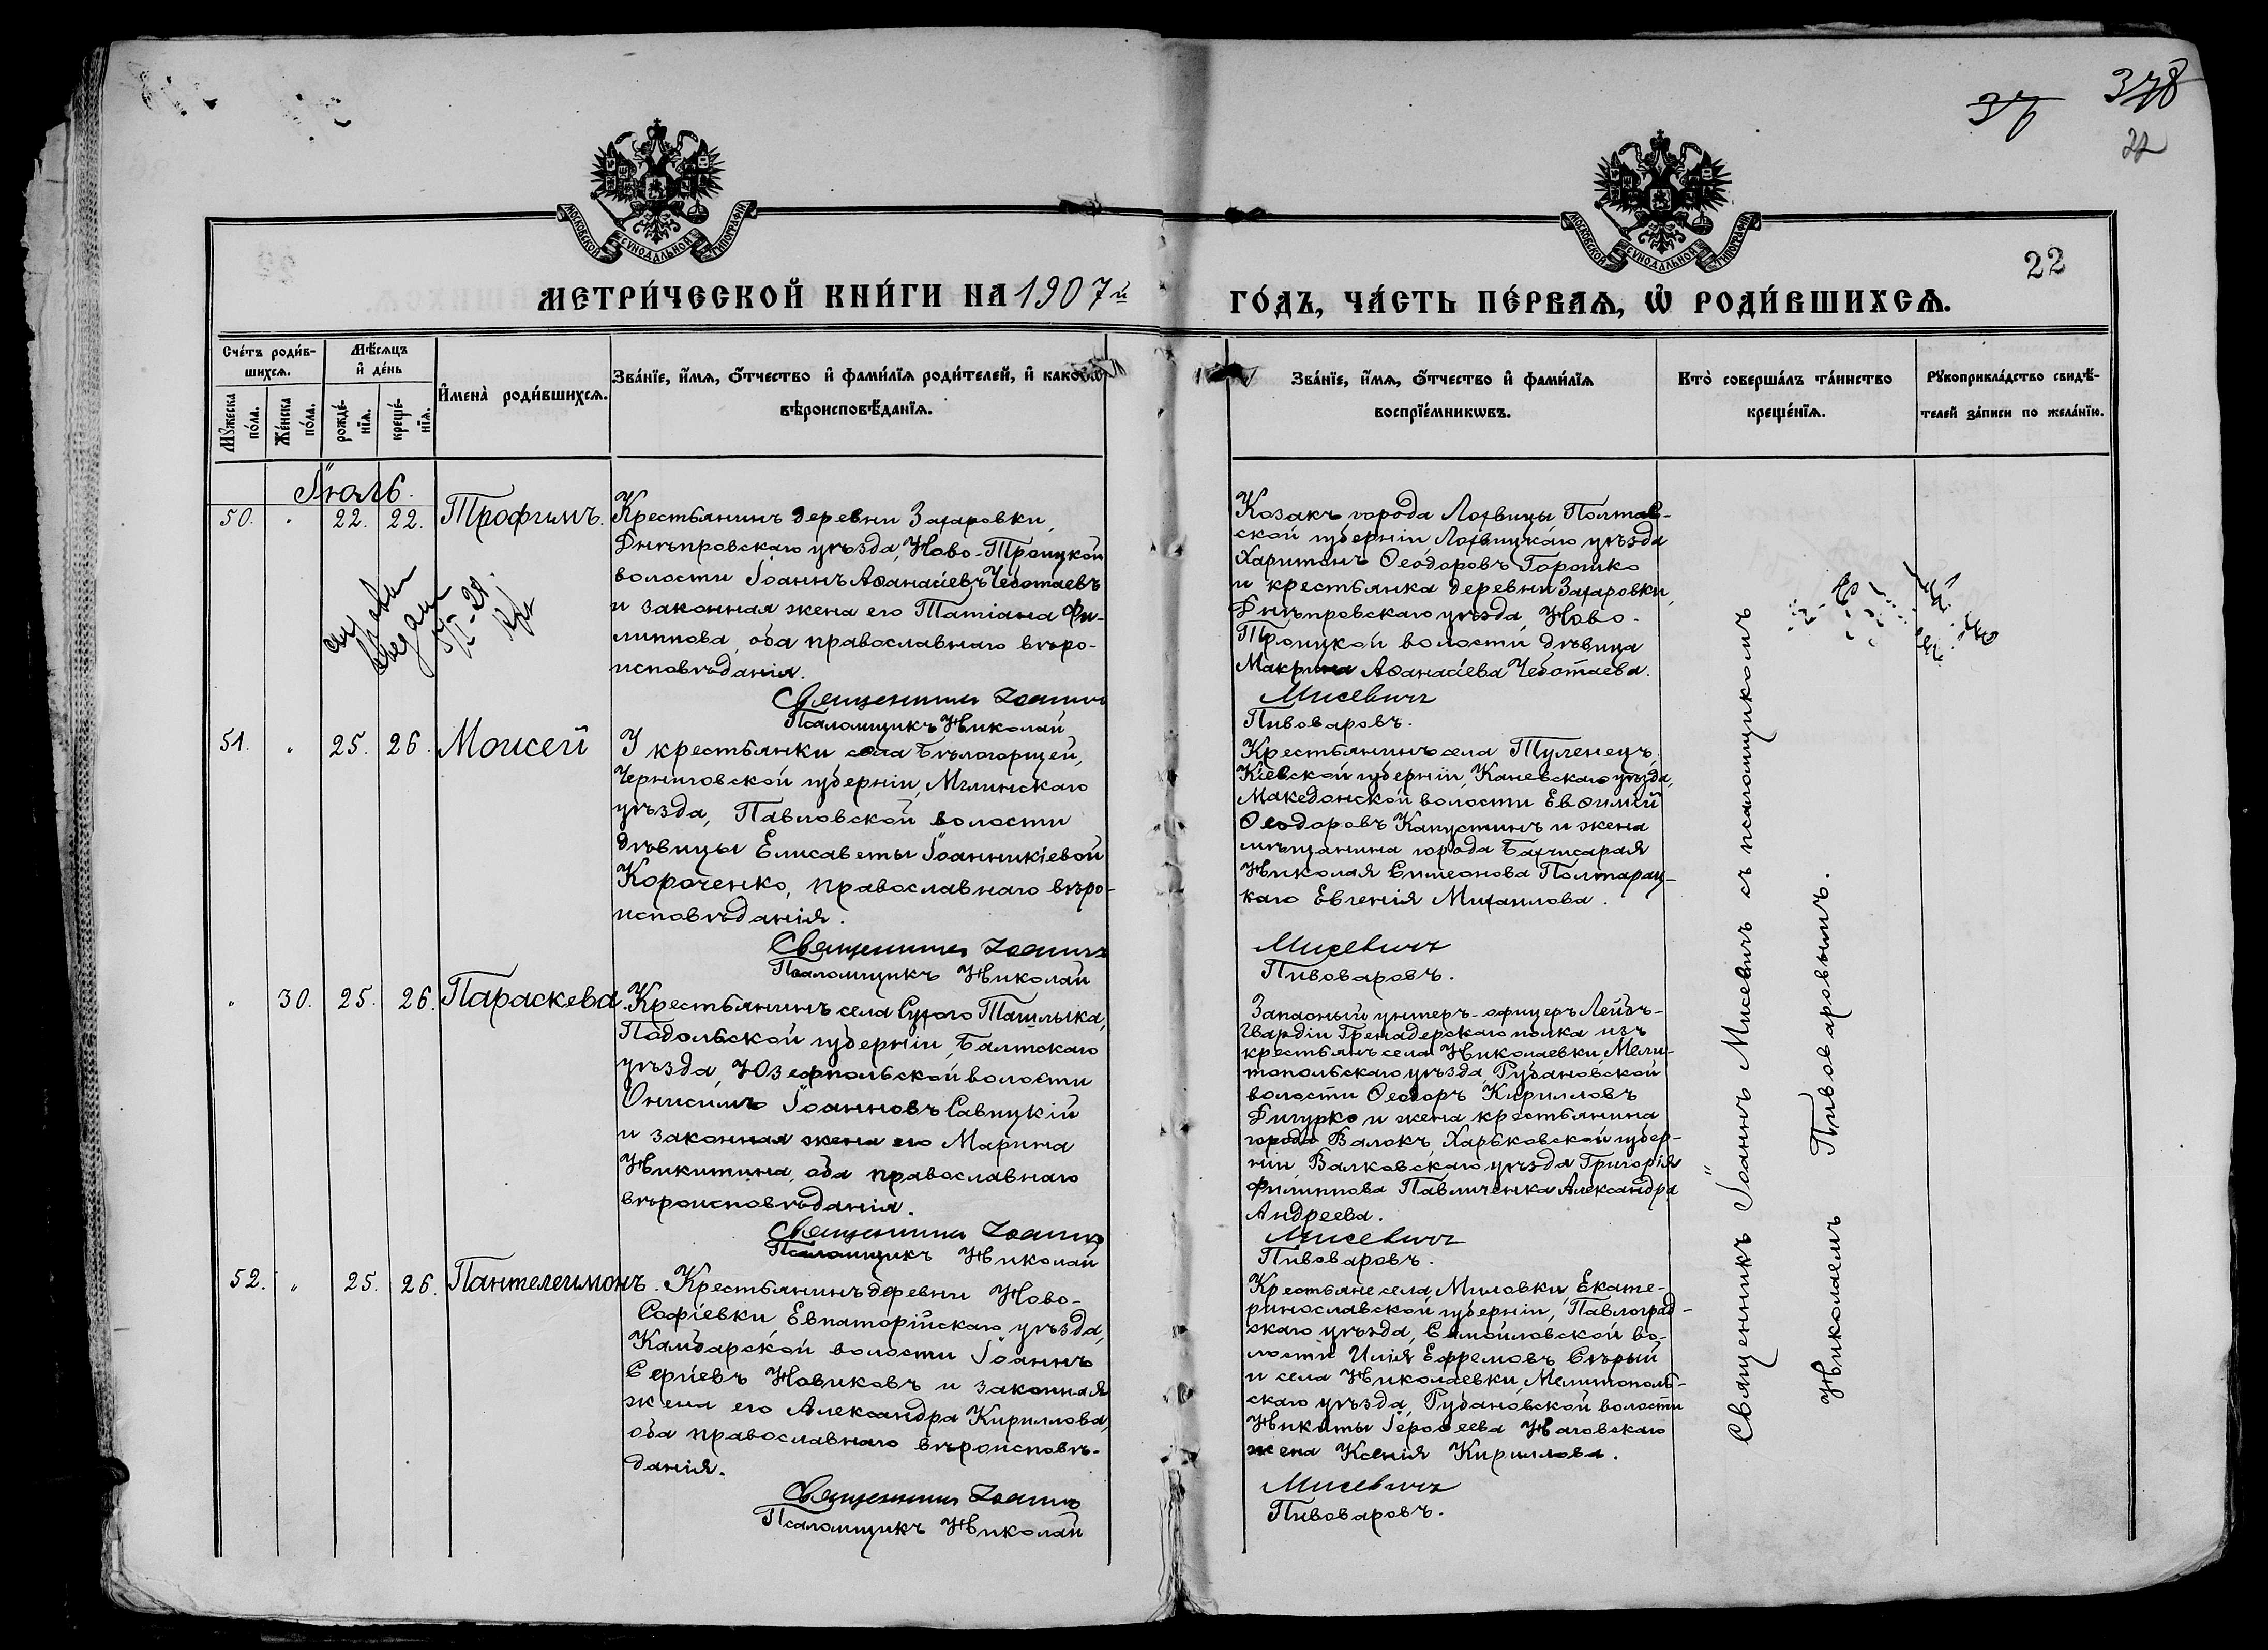 37 378
22
МОСКОВСКОЙ СѴНОДАЛЬНОЙ ТИПОГРАФІИ
МОСКОВСКОЙ СѴНОДАЛЬНОЙ ТИПОГРАФІИ
22
МЕТРИ́ЧЕСКОЙ КНИ́ГИ НА 1907й
ГО́ДЪ, ЧА́СТЬ ПЕ́РВАѦ, Ѽ РОДИ́ВШИХСѦ.
Сче́тъ роди́в-
шихсѧ.
Мꙋ́жеска
по́ла.
Же́нска
по́ла.
Мѣ́сѧцъ
и҆ де́нь
рожде́-
нїѧ.
креще́-
нїѧ.
И҆мена̀ роди́вшихсѧ.
Зва́нїе, и҆́мѧ, ѻ҆́тчество и҆ фами́лїѧ роди́телей, и҆ какого
вѣроисповѣ́данїѧ.
Зва́нїе, и҆́мѧ, ѻ҆́тчество и҆ фами́лїѧ
воспрїе́мникѡвъ.
Кто̀ соверша́лъ та́инство
креще́нїѧ.
Рꙋкоприкла́дство свидѣ́-
телей за́писи по жела́нїю.
Іюль.
50. " 22. 22. Трофимъ.
Крестьянинъ деревни Захаровки,
Днѣпровскаго уѣзда, Ново-Троицкой
волости Іоаннъ Аѳанасіевъ Чеботаевъ
и законная жена его Татіана Фи-
липпова, оба православнаго вѣро-
исповѣданія.
Священникъ Іоаннъ
Псаломщикъ Николай
Козакъ города Лохвицы, Полтав-
ской губерніи Лохвицкаго уѣзда
Харитонъ Ѳеодоровъ Горошко
и крестьянка деревни Захаровки,
Днѣпровскаго уѣзда, Ново-
Троицкой волости дѣвица
Макрина Аѳанасіева Чеботаева.
Мисевичъ
Пивоваровъ.
51. " 25. 26. Моисей
У крестьянки села Бѣлогорщей,
Черниговской губерніи, Мглинскаго
уѣзда, Павловской волости
дѣвицы Елисаветы Іоанникіевой
Короченко, православнаго вѣро-
исповѣданія.
Священникъ Іоаннъ
Псаломщикъ Николай
Крестьянинъ села Туленецъ,
Кіевской губерніи, Каневскаго уѣзда,
Македонской волости Евѳимій
Ѳеодоровъ Капустинъ и жена
мѣщанина города Бахчисарая
Николая Симеонова Полтарац-
каго Евгенія Михаилова.
Мисевичъ
Пивоваровъ.
" 30. 25. 26. Параскева.
Крестьянинъ села Сухого Ташлыка,
Подольской губерніи, Балтскаго
уѣзда, Юзефпольской волости
Онисимъ Іоанновъ Савицкій
и законная жена его Марина
Никитина, оба православнаго
вѣроисповѣданія.
Священникъ Іоаннъ
Псаломщикъ Николай
Запасный унтеръ-офицеръ Лейбъ-
Гвардіи Гренадерскаго полка изъ
крестьянъ села Николаевки, Мели-
топольскаго уѣзда, Рубановской
волости Ѳеодоръ Кирилловъ
Дигурко и жена крестьянина
города Валокъ, Харьковской губер-
ніи Валковскаго уѣзда Григорія
Филиппова Павличенка Александра
Андреева.
Мисевичъ
Пивоваровъ.
52. " 25. 26. Пантелеимонъ.
Крестьянинъ деревни Ново-
Софіевки Евпаторійскаго уѣзда,
Камбарской волости Іоаннъ
Сергіевъ Новиковъ и законная
жена его Александра Кириллова,
оба православнаго вѣроисповѣ-
данія.
Священникъ Іоаннъ
Псаломщикъ Николай
Крестьяне села Миловки Екате-
ринославской губерніи, Павлоград-
скаго уѣзда, Самойловской во-
лости Илія Ефремовъ Сѣрый
и села Николаевки, Мелитополь-
скаго уѣзда, Рубановской волости
Никиты Іероѳеева Наговскаго
жена Ксенія Кириллова.
Мисевичъ
Пивоваровъ.
Священникъ Іоаннъ Мисевичъ съ псаломщикомъ
Николаемъ Пивоваровымъ.